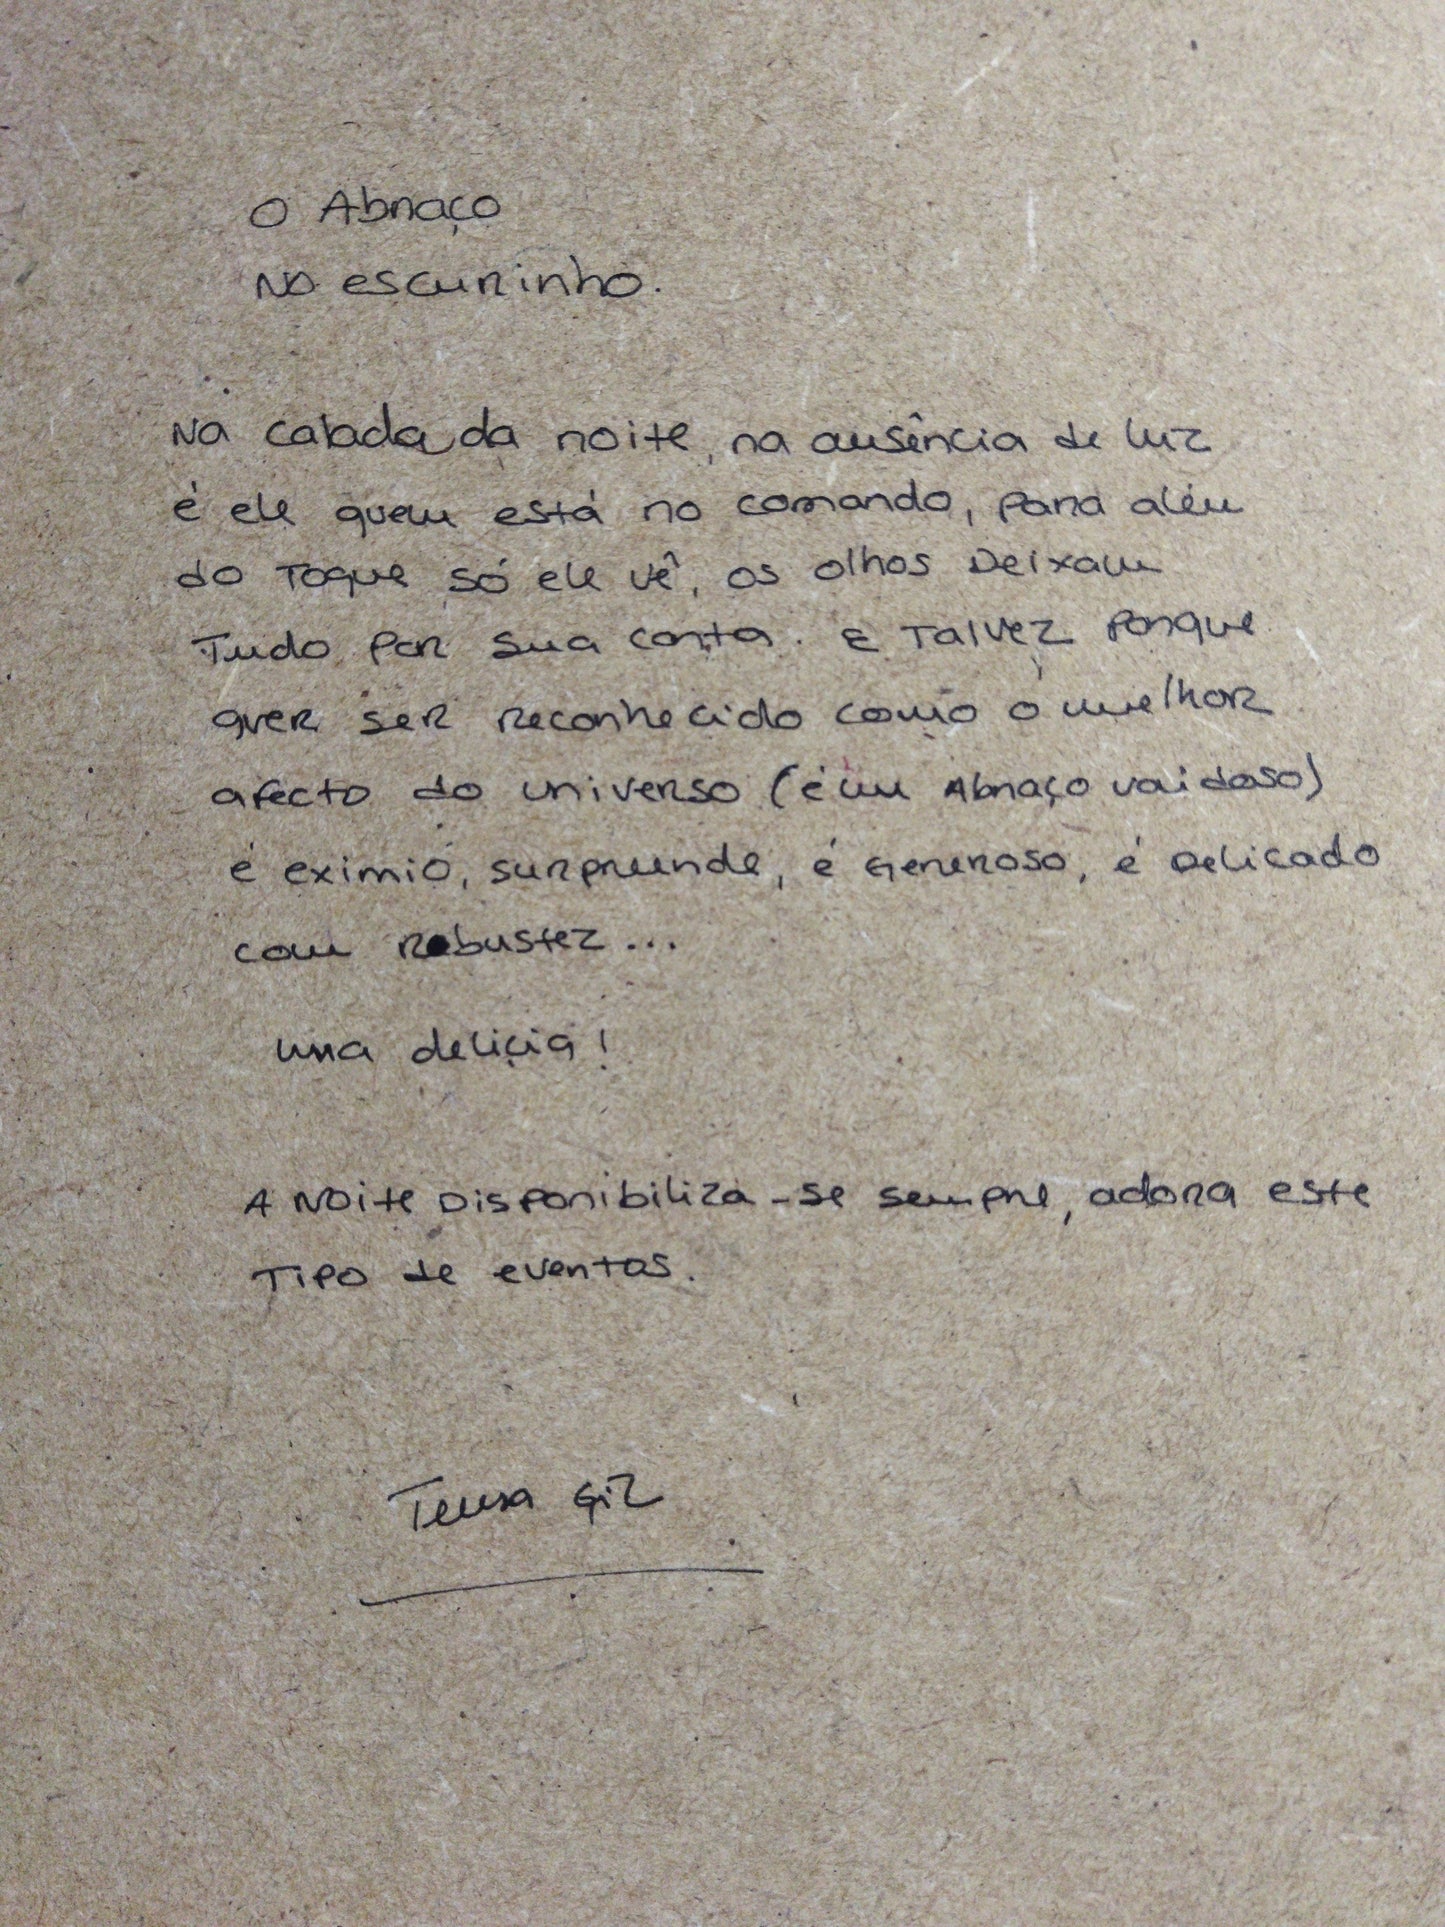 O Abraço
No escurinho.
Na calada da noite, na ausência de luz
é ele quem está no comando, para além
do Toque só ele vê, os olhos Deixam
Tudo por sua conta. E Talvez porque
quer ser reconhecido como o melhor
afecto do universo (é um Abraço vaidoso)
é eximio, surpreende, é Generoso, é Delicado
com Robustez...
uma delicia!
A Noite Disponibiliza-se sempre, adora este
Tipo de eventos.
Gil